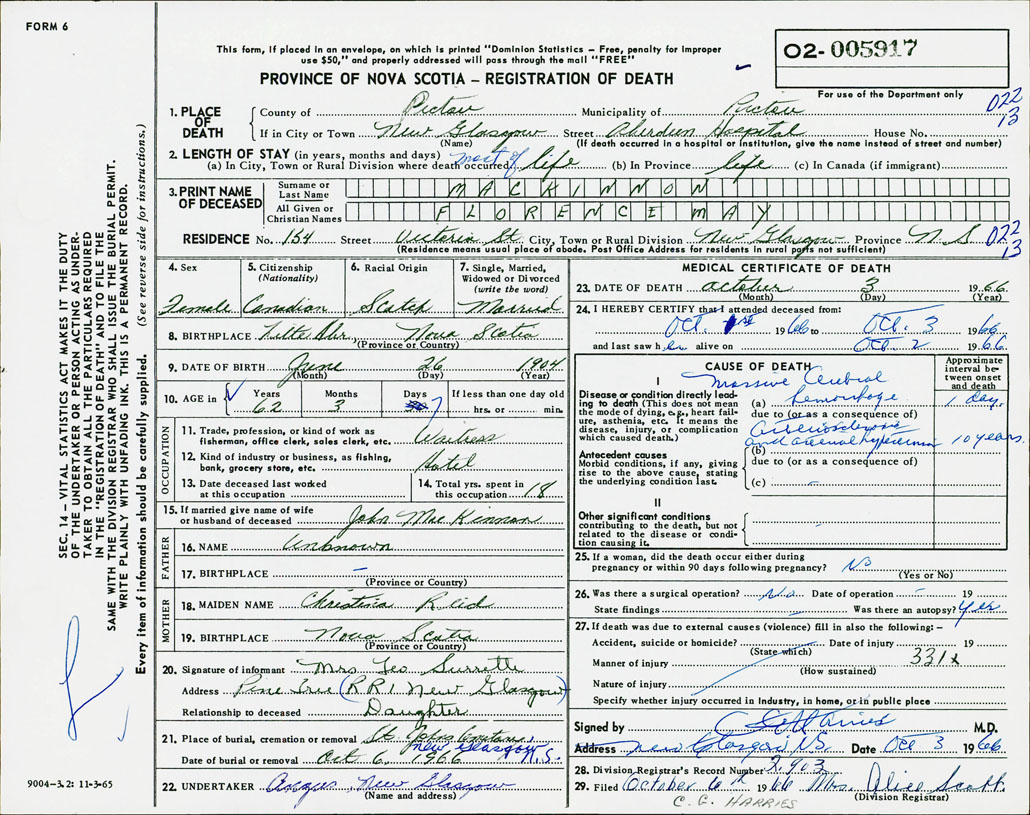 FORM 6
This form, if placed in an envelope, on which is printed "Dominion Statistics – Free, penalty for improper
use $50," and properly addressed will pass through the mail "FREE"
O2-005917
For use of the Department only
PROVINCE OF NOVA SCOTIA – REGISTRATION OF DEATH
022
13
1. PLACE OF DEATH
County of Pictou Municipality of Pictou
If in City or Town New Glasgow Street Aberdeen Hospital House No.
(Name) (If death occurred in a hospital or institution, give the name instead of street and number)
2. LENGTH OF STAY (in years, months and days)
(a) In City, Town or Rural Division where death occurred most of life (b) In Province life (c) In Canada (if immigrant)
3. PRINT NAME OF DECEASED
Surname or Last Name MACKINNON
All Given or Christian Names FLORENCE MAY
RESIDENCE No. 154 Street Victoria St. City, Town or Rural Division New Glasgow Province N.S
(Residence means usual place of abode. Post Office Address for residents in rural parts not sufficient)
022
13
4. Sex
Female
5. Citizenship
(Nationality)
Canadian
6. Racial Origin
Scotch
7. Single, Married,
Widowed or Divorced
(write the word)
Married
8. BIRTHPLACE Nova Scotia
(Province or Country)
9. DATE OF BIRTH June 26 1904
(Month) (Day) (Year)
10. AGE in
Years 62
Months 3
Days 7
If less than one day old
hrs. or min.
OCCUPATION
11. Trade, profession, or kind of work as
fisherman, office clerk, sales clerk, etc. Waitress
12. Kind of industry or business, as fishing,
bank, grocery store, etc. Hotel
13. Date deceased last worked
at this occupation
14. Total yrs. spent in
this occupation 18
15. If married give name of wife
or husband of deceased John MacKinnon
FATHER
16. NAME Unknown
17. BIRTHPLACE –
(Province or Country)
MOTHER
18. MAIDEN NAME Christina Reid
19. BIRTHPLACE Nova Scotia
(Province or Country)
20. Signature of informant Mrs Geo Surrette
Address Pine Tree (RR1 New Glasgow)
Relationship to deceased Daughter
21. Place of burial, cremation or removal St. Johns
New Glasgow, N.S.
Date of burial or removal Oct 6, 1966
22. UNDERTAKER Angus, New Glasgow
(Name and address)
MEDICAL CERTIFICATE OF DEATH
23. DATE OF DEATH October 3 1966
(Month) (Day) (Year)
24. I HEREBY CERTIFY that I attended deceased from:
Oct. 1st 1966 to Oct. 3 1966
and last saw her alive on Oct. 2 1966
CAUSE OF DEATH
Approximate
interval be-
tween onset
and death
I
Disease or condition directly lead-
ing to death (This does not mean
the mode of dying, e.g., heart fail-
ure, asthenia, etc. It means the
disease, injury, or complication
which caused death.)
Massive Cerebral
(a) hemorrhage 1 day.
due to (or as a consequence of)
Arteriosclerosis
and arterial hypertension 10 years.
(b)
due to (or as a consequence of)
Antecedent causes
Morbid conditions, if any, giving
rise to the above cause, stating
the underlying condition last.
(c) –
II
Other significant conditions
contributing to the death, but not
related to the disease or condi-
tion causing it.
25. If a woman, did the death occur either during
pregnancy or within 90 days following pregnancy? No
(Yes or No)
26. Was there a surgical operation? No Date of operation – 19
State findings – Was there an autopsy? Yes
27. If death was due to external causes (violence) fill in also the following: –
Accident, suicide or homicide? Date of injury 19
(State which)
Manner of injury 331X
(How sustained)
Nature of injury
Specify whether injury occurred in Industry, in home, or in public place
Signed by M.D.
Address New Glasgow N.S. Date Oct 3 1966
28. Division Registrar's Record Number 2903
29. Filed October 6th 1966 Mrs. Alice Scott
(Division Registrar)
C. G. HARRIES
SEC. 14 – VITAL STATISTICS ACT MAKES IT THE DUTY
OF THE UNDERTAKER OR PERSON ACTING AS UNDER-
TAKER TO OBTAIN ALL THE PARTICULARS REQUIRED
IN THE "REGISTRATION OF DEATH" AND TO FILE THE
SAME WITH THE DIVISION REGISTRAR WHO SHALL ISSUE THE BURIAL PERMIT.
WRITE PLAINLY WITH UNFADING INK. THIS IS A PERMANENT RECORD.
Every item of information should be carefully supplied. (See reverse side for instructions.)
9004-3.2: 11-3-65